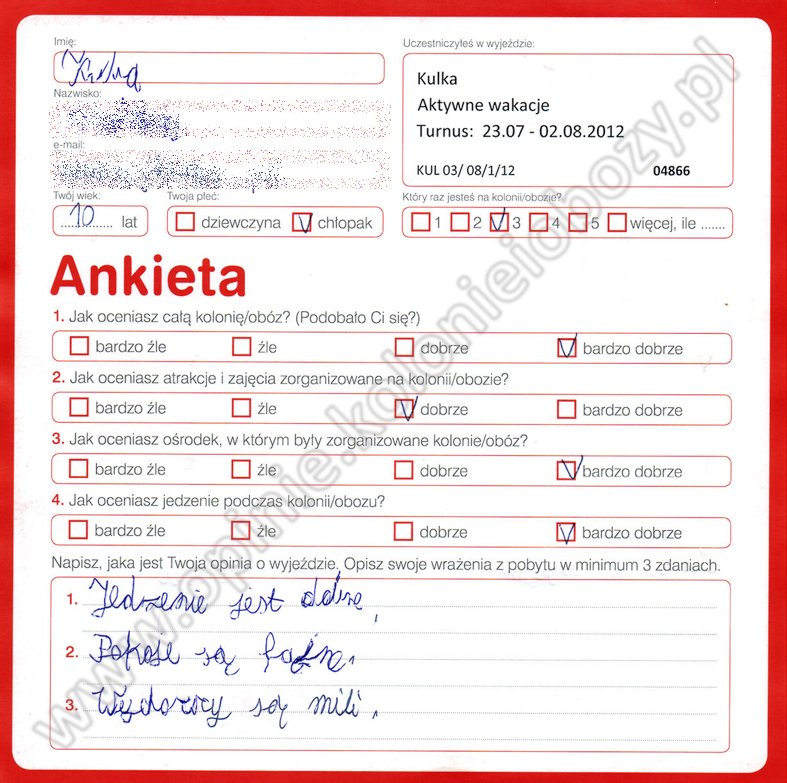 Imię:
Nazwisko:
e-mail:
Twój wiek: Twoja płeć:
10 lat dziewczyna V chłopak
Uczestniczyłeś w wyjeździe:
Kulka
Aktywne wakacje
Turnus: 23.07 - 02.08.2012
KUL 03/ 08/1/12 04866
Który raz jesteś na kolonii/obozie?
1 2 V 3 4 5 więcej, ile .......
Ankieta
1. Jak oceniasz całą kolonię/obóz? (Podobało Ci się?)
bardzo źle źle dobrze V bardzo dobrze
2. Jak oceniasz atrakcje i zajęcia zorganizowane na kolonii/obozie?
bardzo źle źle V dobrze bardzo dobrze
3. Jak oceniasz ośrodek, w którym były zorganizowane kolonie/obóz?
bardzo źle źle dobrze V bardzo dobrze
4. Jak oceniasz jedzenie podczas kolonii/obozu?
bardzo źle źle dobrze V bardzo dobrze
Napisz, jaka jest Twoja opinia o wyjeździe. Opisz swoje wrażenia z pobytu w minimum 3 zdaniach.
1. Jedzenie jest dobre,
2. Pokoje są fajne.
3. Wychowcy są mili,
www.opinie.kolonieiobozy.pl